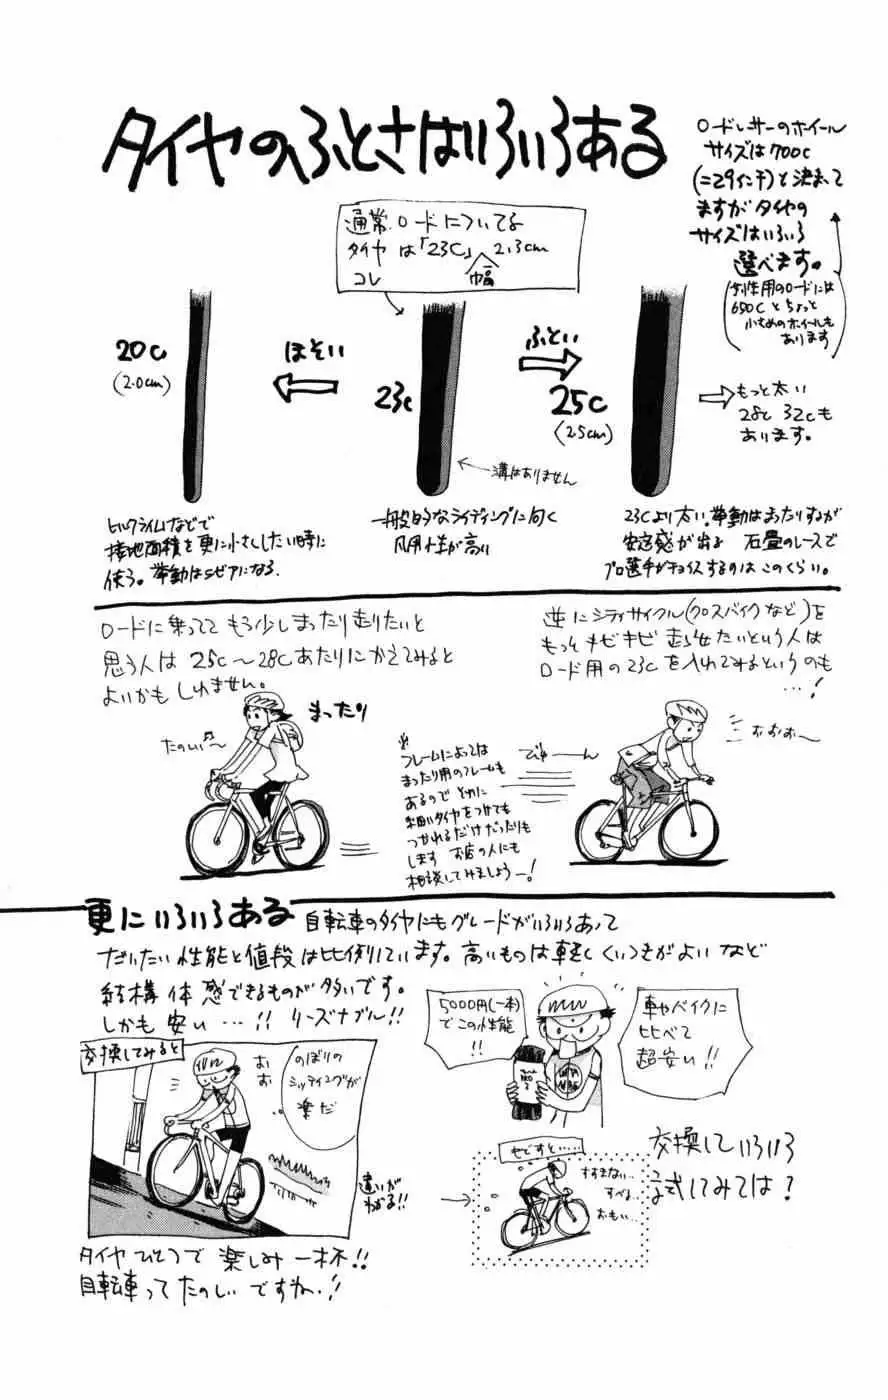 タイヤのふとさはいろいろある
ロードレーサーのホイール
サイズは700c
(=29インチ)と決まって
ますがタイヤの
サイズはいろいろ
選べます。
(女性用のロードには
650Cとちょっと
小さめのホイールも
あります)
通常ロードについてる
タイヤは「23C」 2.3cm
コレ
幅
20c
(2.0cm)
ほそい
23c
ふとい
25c
(2.5cm)
もっと太い
28c 32cも
あります。
溝はありません
ヒルクライムなどで
接地面積を更に小さくしたい時に
使う。挙動はシビアになる.
一般的なライディングに向く
汎用性が高い
23Cより太い。挙動はまったりするが
安定感が出る 石畳のレースで
プロ選手がチョイスするのはこのくらい。
ロードに乗っててもう少しまったり走りたいと
思う人は 25c〜28cあたりにかえてみると
よいかもしれません。
逆にシティサイクル(クロスバイクなど)を
もっとキビキビ走らせたいという人は
ロード用の23cを入れてみるというのも
…!
まったり
たのしい〜
※
フレームによっては
まったり用のフレームも
あるので それに
細いタイヤをつけても
つかれるだけだったりも
します お店の人にも
相談してみましょうー!
びゅーん
おおお〜
更にいろいろある 自転車のタイヤにもグレードがいろいろあって
だいたい性能と値段は比例しています。高いものは軽くくいつきがよいなど
結構体感できるものが多いです。
しかも安い…!! リーズナブル!!
交換してみると
おお
のぼりの
シッティングが
楽だ
違いが
わかる!!
5000円(一本)
でこの性能
!!
車やバイクに
比べて
超安い!!
やですと……
すすまない…
すべる…
おもい…
交換していろいろ
試してみては?
タイヤひとつで楽しみ一杯!!
自転車ってたのしいですね..!!